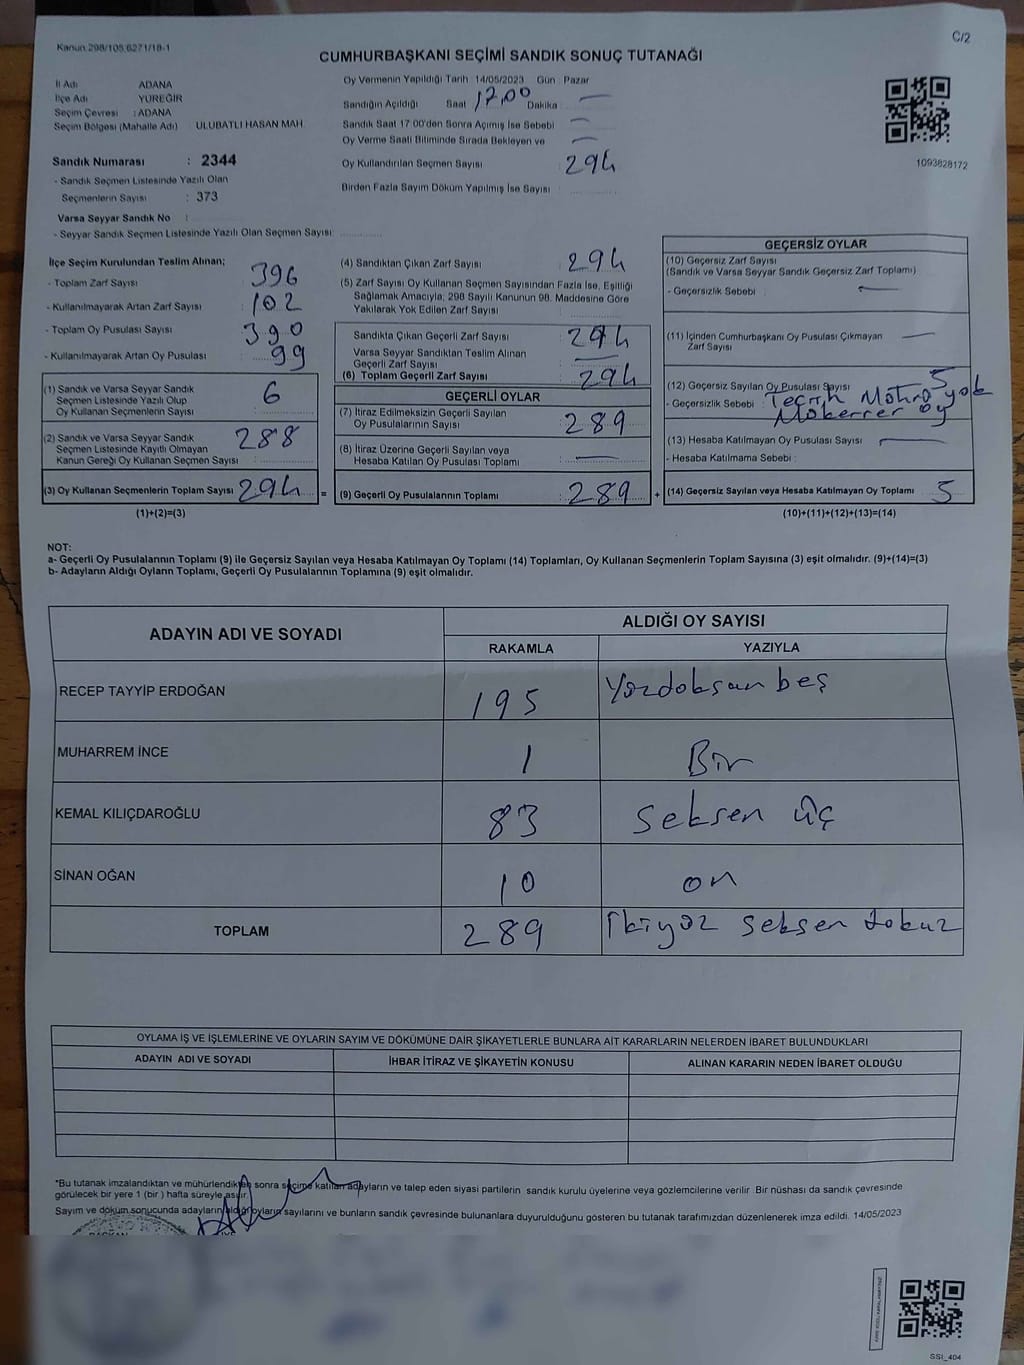 Kanun:298/105;6271/18-1
C/2
CUMHURBAŞKANI SEÇİMİ SANDIK SONUÇ TUTANAĞI
İl Adı ADANA
İlçe Adı YÜREĞİR
Seçim Çevresi : ADANA
Seçim Bölgesi (Mahalle Adı) : ULUBATLI HASAN MAH.
Sandık Numarası : 2344
- Sandık Seçmen Listesinde Yazılı Olan
Seçmenlerin Sayısı : 373
Varsa Seyyar Sandık No :
- Seyyar Sandık Seçmen Listesinde Yazılı Olan Seçmen Sayısı:
Oy Vermenin Yapıldığı Tarih :14/05/2023 Gün : Pazar
Sandığın Açıldığı Saat 17,00 Dakika : —
Sandık Saat 17:00'den Sonra Açımış İse Sebebi : —
Oy Verme Saati Bitiminde Sırada Bekleyen ve —
Oy Kullandırılan Seçmen Sayısı : 294
Birden Fazla Sayım Döküm Yapılmış İse Sayısı :
1093628172
İlçe Seçim Kurulundan Teslim Alınan;
- Toplam Zarf Sayısı : 396
- Kullanılmayarak Artan Zarf Sayısı : 102
- Toplam Oy Pusulası Sayısı : 390
- Kullanılmayarak Artan Oy Pusulası : 99
(1) Sandık ve Varsa Seyyar Sandık
Seçmen Listesinde Yazılı Olup 6
Oy Kullanan Seçmenlerin Sayısı :
(2) Sandık ve Varsa Seyyar Sandık 288
Seçmen Listesinde Kayıtlı Olmayan
Kanun Gereği Oy Kullanan Seçmen Sayısı :
(3) Oy Kullanan Seçmenlerin Toplam Sayısı 294 =
(1)+(2)=(3)
(4) Sandıktan Çıkan Zarf Sayısı : 294
(5) Zarf Sayısı Oy Kullanan Seçmen Sayısından Fazla İse, Eşitliği
Sağlamak Amacıyla; 298 Sayılı Kanunun 98. Maddesine Göre
Yakılarak Yok Edilen Zarf Sayısı :
Sandıkta Çıkan Geçerli Zarf Sayısı : 294
Varsa Seyyar Sandıktan Teslim Alınan —
Geçerli Zarf Sayısı :
(6) Toplam Geçerli Zarf Sayısı : 294
GEÇERLİ OYLAR
(7) İtiraz Edilmeksizin Geçerli Sayılan
Oy Pusulalarının Sayısı : 289
(8) İtiraz Üzerine Geçerli Sayılan veya
Hesaba Katılan Oy Pusulası Toplamı : —
(9) Geçerli Oy Pusulalarının Toplamı : 289 +
GEÇERSİZ OYLAR
(10) Geçersiz Zarf Sayısı
(Sandık ve Varsa Seyyar Sandık Geçersiz Zarf Toplamı)
- Geçersizlik Sebebi : —
(11) İçinden Cumhurbaşkanı Oy Pusulası Çıkmayan —
Zarf Sayısı
(12) Geçersiz Sayılan Oy Pusulası Sayısı 5
- Geçersizlik Sebebi : Tercih Mührü yok
Mükerrer oy
(13) Hesaba Katılmayan Oy Pusulası Sayısı : —
- Hesaba Katılmama Sebebi :
(14) Geçersiz Sayılan veya Hesaba Katılmayan Oy Toplamı : 5
(10)+(11)+(12)+(13)=(14)
NOT:
a- Geçerli Oy Pusulalarının Toplamı (9) ile Geçersiz Sayılan veya Hesaba Katılmayan Oy Toplamı (14) Toplamları, Oy Kullanan Seçmenlerin Toplam Sayısına (3) eşit olmalıdır. (9)+(14)=(3)
b- Adayların Aldığı Oyların Toplamı, Geçerli Oy Pusulalarının Toplamına (9) eşit olmalıdır.
ADAYIN ADI VE SOYADI ALDIĞI OY SAYISI
RAKAMLA YAZIYLA
RECEP TAYYİP ERDOĞAN 195 Yüzdoksan beş
MUHARREM İNCE 1 Bir
KEMAL KILIÇDAROĞLU 83 Seksen üç
SİNAN OĞAN 10 on
TOPLAM 289 İkiyüz seksen dokuz
OYLAMA İŞ VE İŞLEMLERİNE VE OYLARIN SAYIM VE DÖKÜMÜNE DAİR ŞİKAYETLERLE BUNLARA AİT KARARLARIN NELERDEN İBARET BULUNDUKLARI
ADAYIN ADI VE SOYADI İHBAR İTİRAZ VE ŞİKAYETİN KONUSU ALINAN KARARIN NEDEN İBARET OLDUĞU
*Bu tutanak imzalandıktan ve mühürlendikten sonra seçime katılan adayların ve talep eden siyasi partilerin sandık kurulu üyelerine veya gözlemcilerine verilir. Bir nüshası da sandık çevresinde
görülecek bir yere 1 (bir) hafta süreyle asılır.
Sayım ve döküm sonucunda adayların aldığı oyların sayılarını ve bunların sandık çevresinde bulunanlara duyurulduğunu gösteren bu tutanak tarafımızdan düzenlenerek imza edildi. 14/05/2023
BAŞKAN
SSI_404